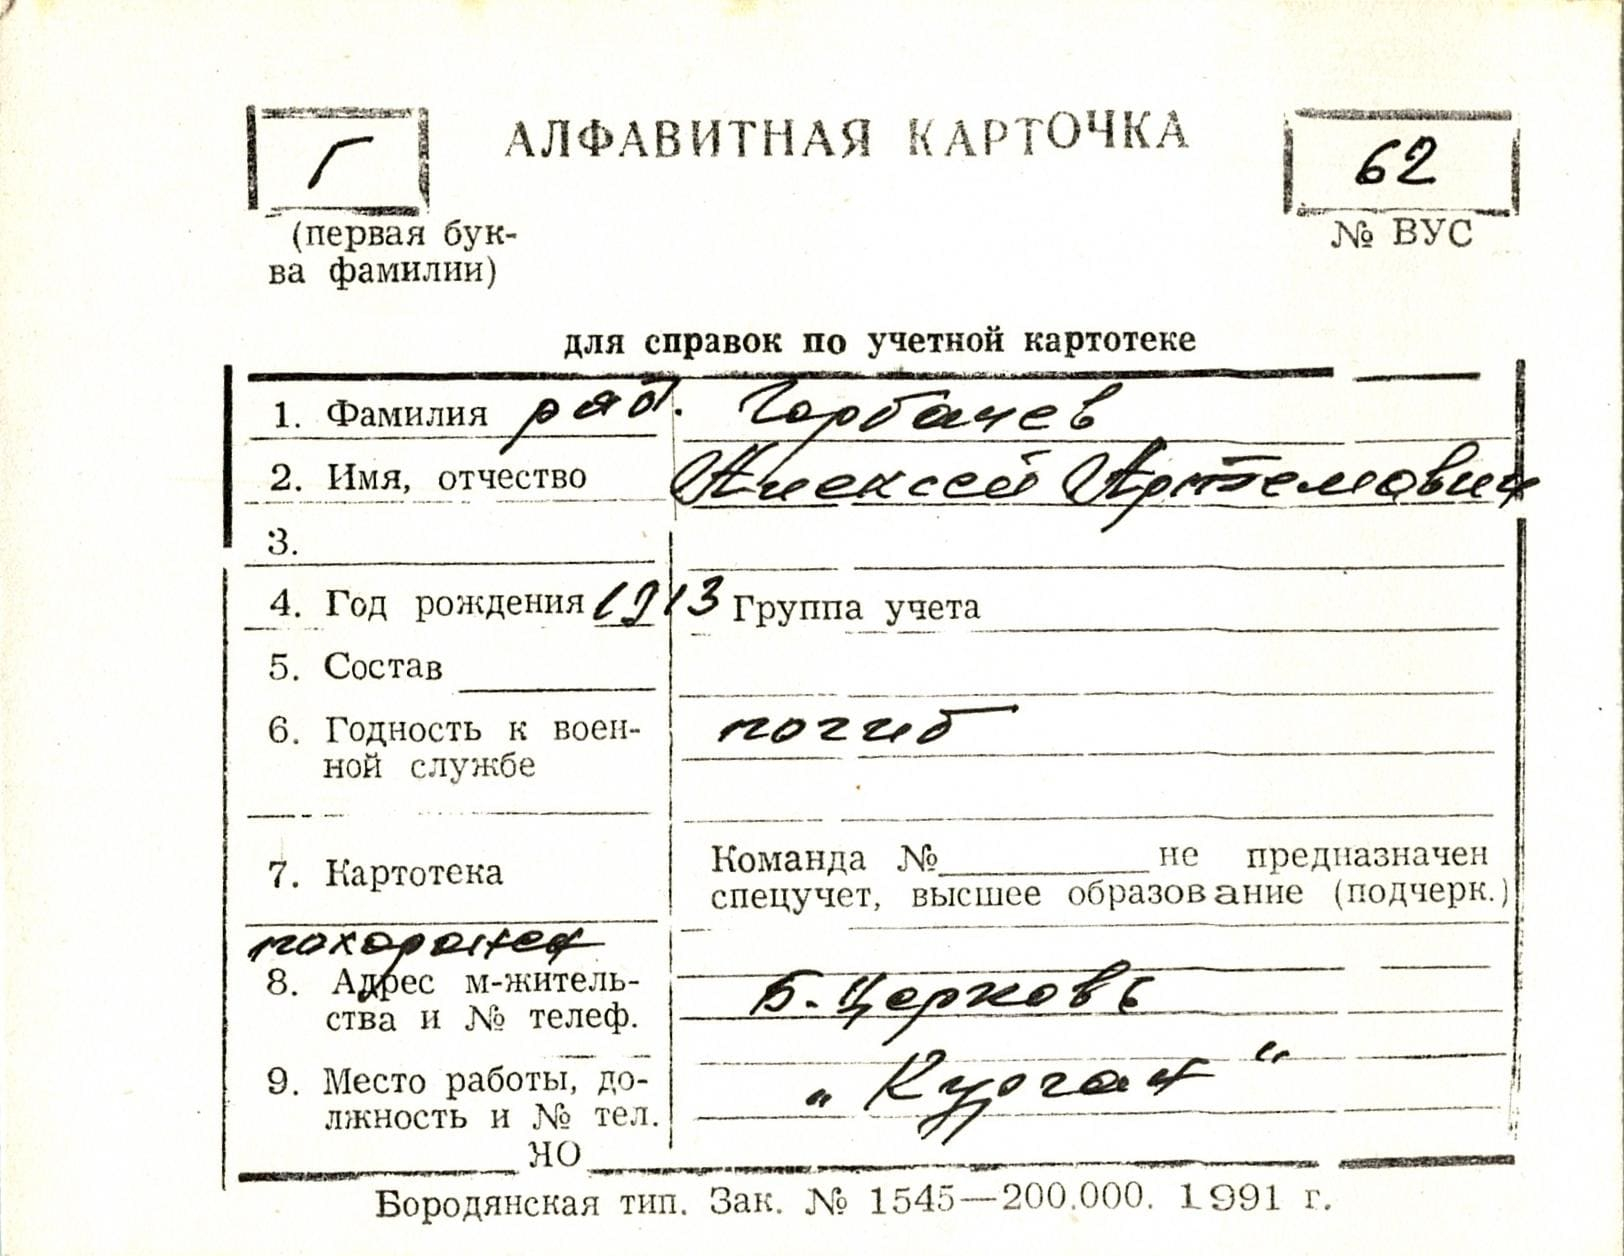 Г
АЛФАВИТНАЯ КАРТОЧКА
62
(первая бук-
ва фамилии)
№ ВУС
для справок по учетной картотеке
1. Фамилия ряд. Горбачев
2. Имя, отчество Алексей Артемович
3.
4. Год рождения 1913 Группа учета
5. Состав
6. Годность к воен-
ной службе
погиб
7. Картотека
Команда № не предназначен
спецучет, высшее образование (подчерк.)
похоронен
8. Адрес м-житель-
ства и № телеф.
Б. Церковь
9. Место работы, до-
лжность и № тел.
„Курган“
НО
Бородянская тип. Зак. № 1545—200.000. 1991 г.